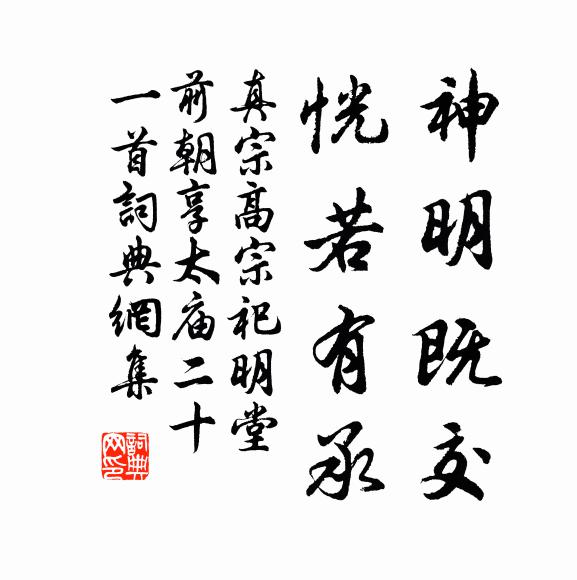 神明既交
恍若有承
真宗高宗祀明堂
前朝享太庙二十
一首詞典網集
詞典
网印